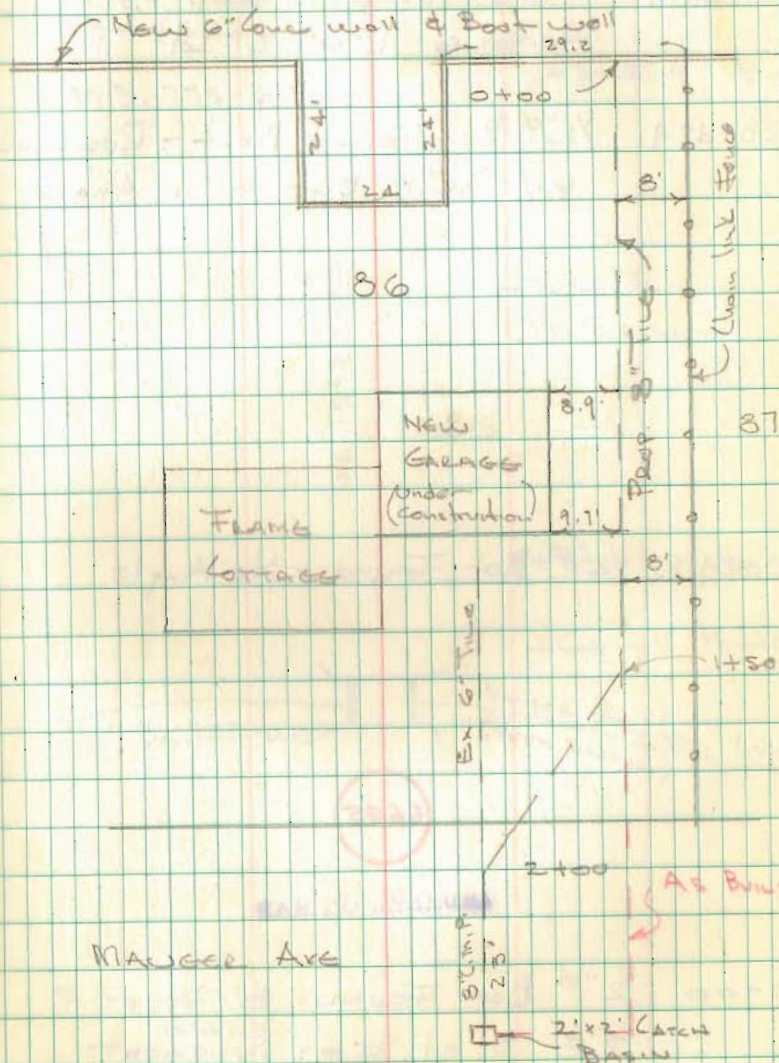 New 6" Conc wall & Boat well
29.2
0+00
24'
24'
24
8'
Chain link Fence
86
PROP. 8" TILE
8.9'
NEW
GARAGE
(Under
Construction)
9.7'
87
FRAME
COTTAGE
8'
Ex 6" TILE
1+50
2+00
AS BUILT
8" C.M.P.
23'
2'x2' CATCH
BASIN